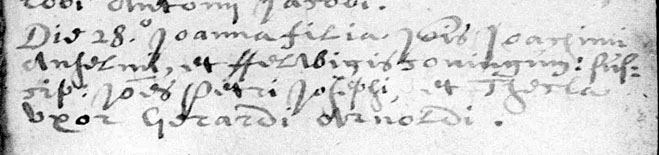 robi Antonij Jacobi.
Die 28.º Joanna filia Jois Joachimi
Anselmi, et Helwigis coniugum: sus-
cip: Joes Petri Josephi, et Thecla
uxor Gerardi Arnoldi.